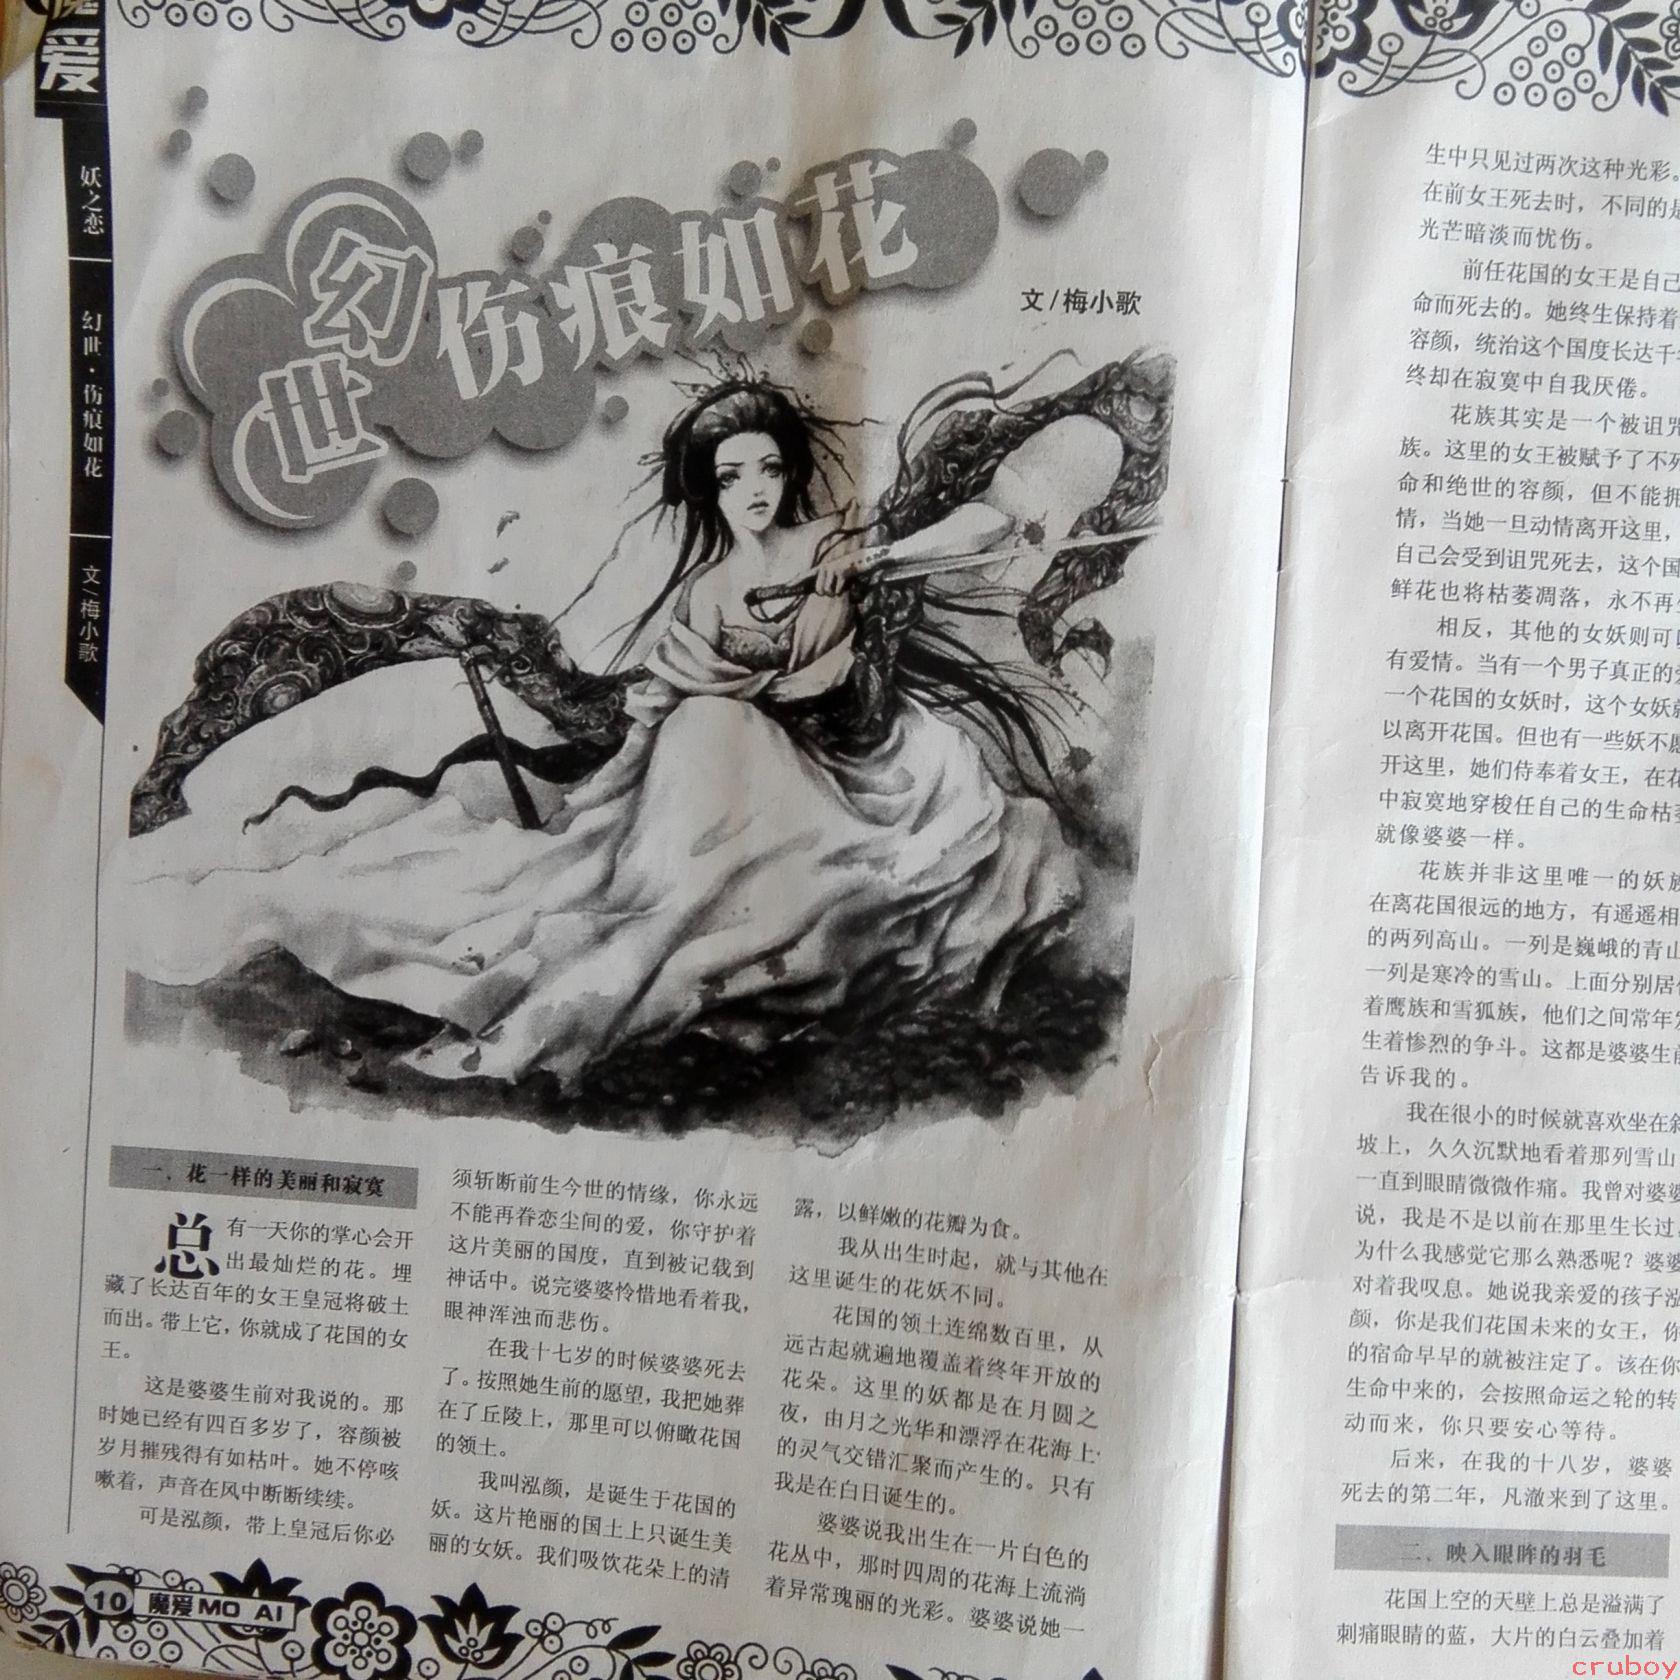 爱
妖之恋
幻世·伤痕如花
文/梅小歌
幻世
伤痕如花
文/梅小歌
一、花一样的美丽和寂寞
总有一天你的掌心会开
出最灿烂的花。埋
藏了长达百年的女王皇冠将破土
而出。带上它,你就成了花国的女
王。
这是婆婆生前对我说的。那
时她已经有四百多岁了,容颜被
岁月摧残得有如枯叶。她不停咳
嗽着,声音在风中断断续续。
可是泓颜,带上皇冠后你必
须斩断前生今世的情缘,你永远
不能再眷恋尘间的爱,你守护着
这片美丽的国度,直到被记载到
神话中。说完婆婆怜惜地看着我,
眼神浑浊而悲伤。
在我十七岁的时候婆婆死去
了。按照她生前的愿望,我把她葬
在了丘陵上,那里可以俯瞰花国
的领土。
我叫泓颜,是诞生于花国的
妖。这片艳丽的国土上只诞生美
丽的女妖。我们吸饮花朵上的清
露,以鲜嫩的花瓣为食。
我从出生时起,就与其他在
这里诞生的花妖不同。
花国的领土连绵数百里,从
远古起就遍地覆盖着终年开放的
花朵。这里的妖都是在月圆之
夜,由月之光华和漂浮在花海上
的灵气交错汇聚而产生的。只有
我是在白日诞生的。
婆婆说我出生在一片白色的
花丛中,那时四周的花海上流淌
着异常瑰丽的光彩。婆婆说她一
10
魔爱MO AI
生中只见过两次这种光彩。
在前女王死去时,不同的是
光芒暗淡而忧伤。
前任花国的女王是自己
命而死去的。她终生保持着
容颜,统治这个国度长达千
终却在寂寞中自我厌倦。
花族其实是一个被诅咒
族。这里的女王被赋予了不死
命和绝世的容颜,但不能拥
情,当她一旦动情离开这里,
自己会受到诅咒死去,这个国
鲜花也将枯萎凋落,永不再
相反,其他的女妖则可
有爱情。当有一个男子真正的
一个花国的女妖时,这个女妖就
以离开花国。但也有一些妖不愿
开这里,她们侍奉着女王,在花
中寂寞地穿梭任自己的生命枯萎
就像婆婆一样。
花族并非这里唯一的妖族
在离花国很远的地方,有遥遥相
的两列高山。一列是巍峨的青山
一列是寒冷的雪山。上面分别居住
着鹰族和雪狐族,他们之间常年发
生着惨烈的争斗。这都是婆婆生前
告诉我的。
我在很小的时候就喜欢坐在斜
坡上,久久沉默地看着那列雪山
一直到眼睛微微作痛。我曾对婆婆
说,我是不是以前在那里生长过,
为什么我感觉它那么熟悉呢?婆婆
对着我叹息。她说我亲爱的孩子泓
颜,你是我们花国未来的女王,你
的宿命早早的就被注定了。该在你
生命中来的,会按照命运之轮的转
动而来,你只要安心等待。
后来,在我的十八岁,婆婆
死去的第二年,凡澈来到了这里。
二、映入眼眸的羽毛
花国上空的天壁上总是溢满了
刺痛眼睛的蓝,大片的白云叠加着
cruboy